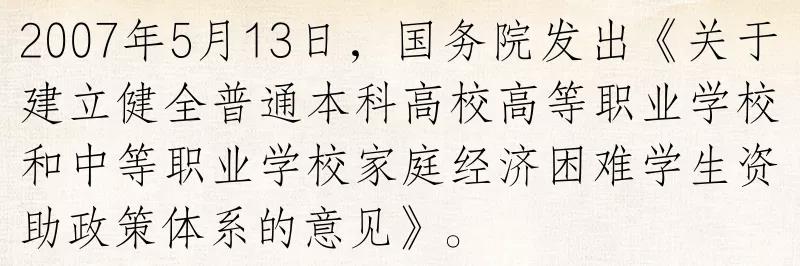 2007年5月13日，国务院发出《关于
建立健全普通本科高校高等职业学校
和中等职业学校家庭经济困难学生资
助政策体系的意见》。